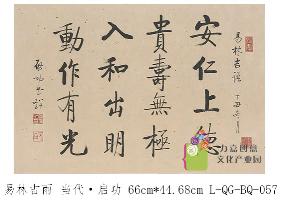 易林吉語 丁丑冬日
安仁上德
貴壽無極
入和出明
動作有光
啟功書于
力嘉创意
文化产业园
易林古雨 当代·启功 66cm*44.68cm L-QG-BQ-057